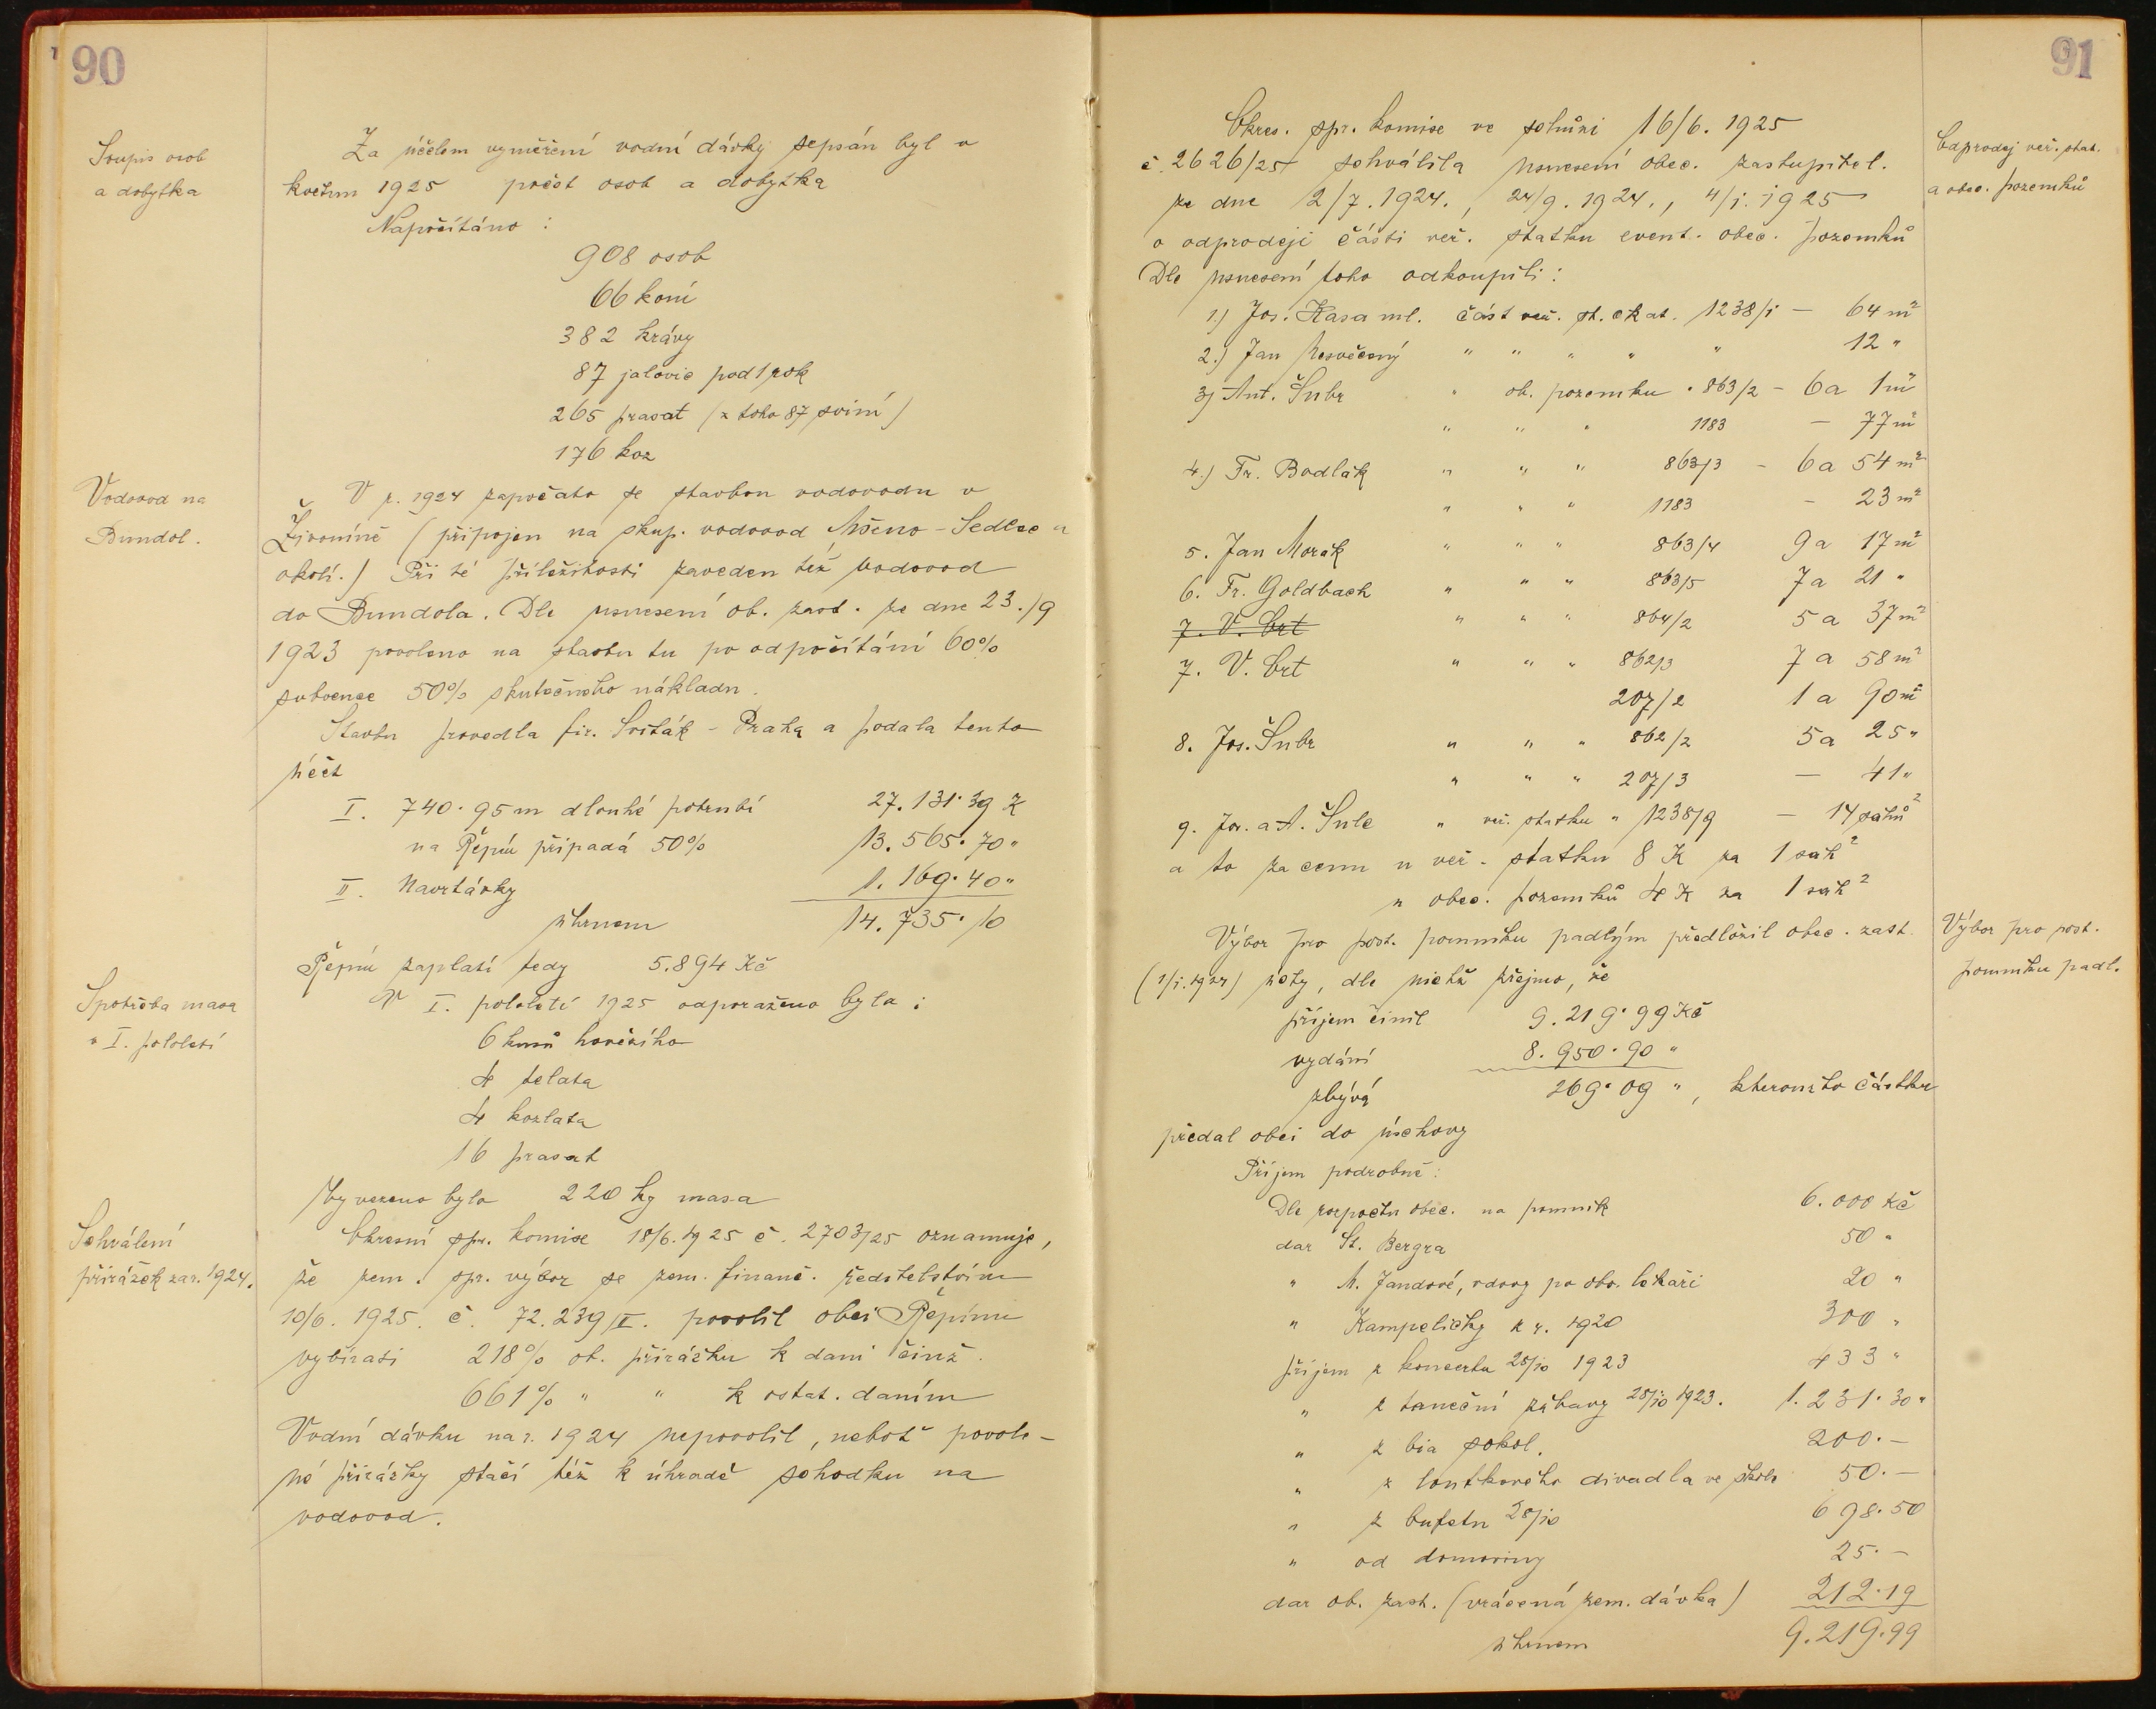 90
Soupis osob
a dobytka
Za účelem vyměření vodní dávky sepsán byl v
květnu 1925 počet osob a dobytka
Napočítáno :
908 osob
66 koní
382 krávy
87 jalovic pod 1 rok
265 prasat (z toho 87 sviní)
176 koz
Vodovod na
Bundol.
V r. 1924 započato se stavbou vodovodu v
Živoníně (připojen na skup. vodovod Mšeno - Sedlec a
okolí.) Při té příležitosti zaveden též vodovod
do Bundola. Dle usnesení ob. zast. ze dne 23./9
1923 povoleno na stavbu tu po odpočítání 60%
subvence 50% skutečného nákladu.
Stavbu provedla fir. Sviták - Praha a podala tento
účet
I. 740·95 m dlouhé potrubí 27.131·39 K
na Řepín připadá 50% 13.565·70 "
II. Navrtávky 1.169·40 "
úhrnem 14.735·10
Řepín zaplatí tedy 5.894 Kč
Spotřeba masa
v I. pololetí
V I. pololetí 1925 odporaženo bylo :
6 kusů hovězího
4 telata
4 kozlata
16 prasat
Vyvezeno bylo 220 kg masa
Schválení
přirážek za r. 1924.
Okresní spr. komise 18/6. 1925 č. 2703/25 oznamuje,
že zem. spr. výbor se zem. finanč. ředitelstvím
10/6. 1925. č. 72.239/II. povolil obci Řepínu
vybírati 218% ob. přirážku k dani činž.
661% " " k ostat. daním
Vodní dávku na r. 1924 nepovolil, neboť povole-
né přirážky stačí též k úhradě schodku na
vodovod.
91
Odprodej veř. stat.
a obec. pozemků
Okres. spr. komise ve schůzi 16/6. 1925
č. 2626/25 schválila usnesení obec. zastupitel.
ze dne 2/7. 1924., 24/9. 1924., 4/1. 1925
o odprodeji části veř. statku event. obec. pozemků
Dle usnesení toho odkoupili :
1.) Jos. Kasa ml. část veř. st. č kat. 1238/1 — 64 m²
2.) Jan " " " " " 12 "
3) Ant. Šubr " ob. pozemku " 863/2 - 6a 1m²
" " " 1183 — 77 m²
4.) Fr. Bodlák " " " 863/3 - 6a 54 m²
" " " 1183 - 23 m²
5. Jan Morák " " " 863/4 9a 17 m²
6. Fr. Goldbach " " " 863/5 7a 21 "
7. V. Ort " " " 864/2 5a 37 m²
7. V. Ort " " " 862/3 7a 58 m²
207/2 1a 90 m²
8. Jos. Šubr " " " 862/2 5a 25 "
" " " 207/3 — 41 "
9. Jos. a A. Šulc " veř. statku " 1238/9 — 14 sáhů²
a to za cenu u veř. statku 8 K za 1 sáh²
u obec. pozemků 4 K za 1 sáh²
Výbor pro post.
pomníku padl.
Výbor pro post. pomníku padlým předložil obec. zast.
(1/1. 1924) účty, dle nichž zřejmo, že
příjem činil 9.219·99 Kč
vydání 8.950·90 "
zbývá 269·09 ", kteroužto částku
předal obci do úschovy
Příjem podrobně :
Dle rozpočtu obec. na pomník 6.000 Kč
dar St. Bergra 50 "
" M. Jandové, vdovy po obv. lékaři 20 "
" Kampeličky z r. 1920 300 "
příjem z koncertu 28/10 1923 433 "
" z taneční zábavy 28/10 1923. 1.231·30 "
" z bia sokol. 200.—
" z loutkového divadla ve škole 50.—
" z bufetu 28/10 698·50
" od domoviny 25.—
dar ob. zast. (vrácená zem. dávka) 212·19
úhrnem 9.219·99